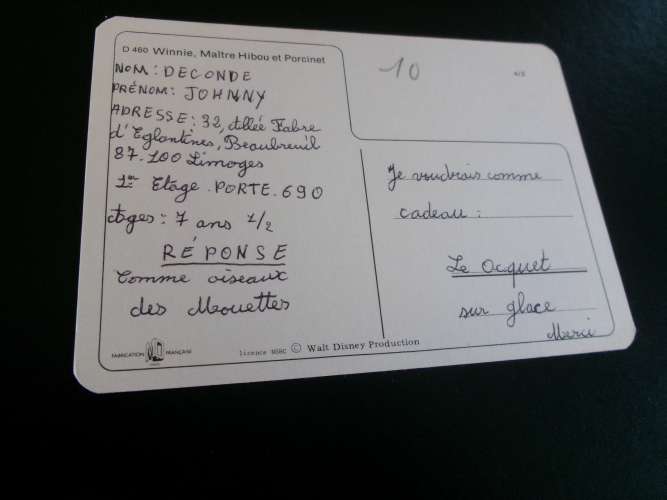 D 460 Winnie, Maître Hibou et Porcinet
NOM: DECONDE
PRÉNOM: JOHNNY
ADRESSE: 32, Allée Fabre
d'Eglantines, Beaubreuil
87.100 Limoges
1er Etage. PORTE. 690
Ages: 7 ans 1/2
RÉPONSE
Comme oiseaux
des Mouettes
FABRICATION FRANÇAISE
licence © Walt Disney Production
10
Je voudrais comme
cadeau:
Le Ocquet
sur glace
Merci